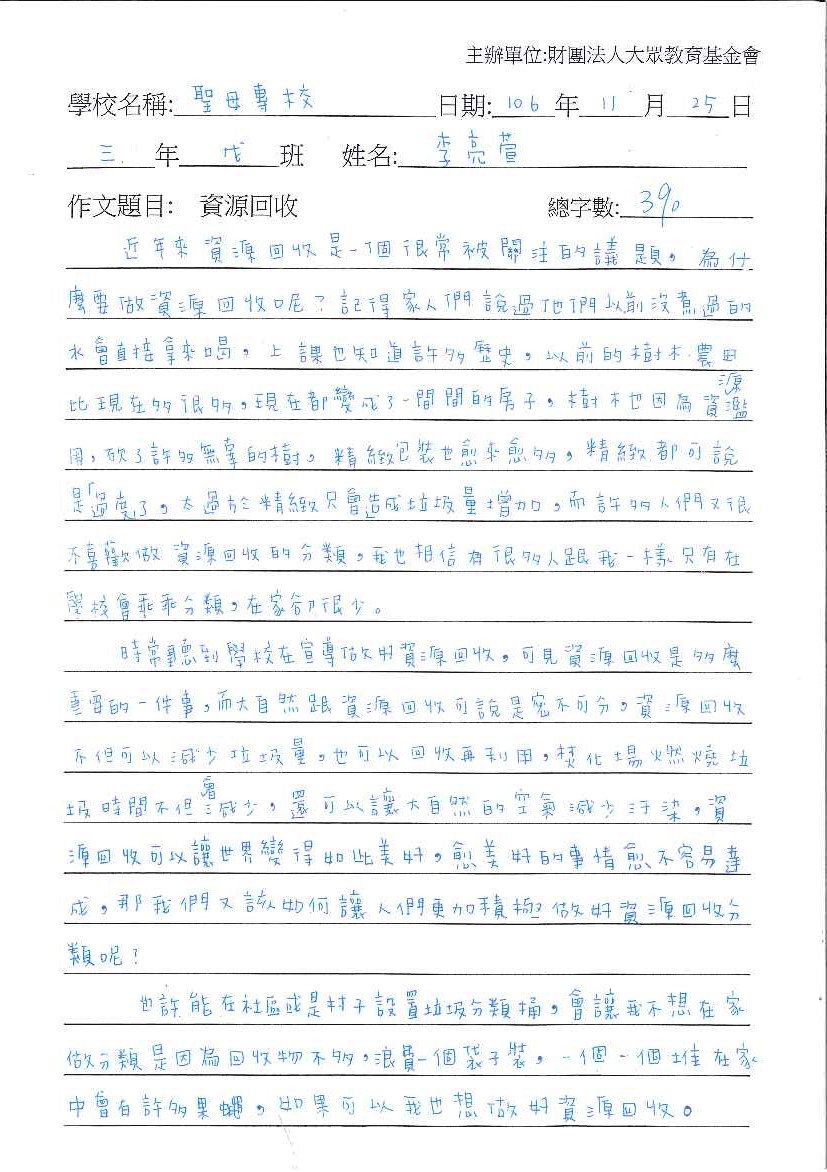 主辦單位:財團法人大眾教育基金會
學校名稱: 聖母專校 日期: 106 年 11 月 25 日
三 年 戊 班 姓名: 李亮萱
作文題目: 資源回收 總字數: 390
近年來資源回收是一個很常被關注的議題,為什
麼要做資源回收呢?記得家人們說過他們以前沒煮過的
水會直接拿來喝,上課也知道許多歷史,以前的樹木.農田
比現在多很多,現在都變成了一間間的房子,樹木也因為資源濫
用,砍了許多無辜的樹,精緻包裝也愈來愈多,精緻都可說
是「過度」了,太過於精緻只會造成垃圾量增加,而許多人們又很
不喜歡做資源回收的分類,我也相信有很多人跟我一樣只有在
學校會乖乖分類,在家卻很少。
時常聽到學校在宣導做好資源回收,可見資源回收是多麼
重要的一件事,而大自然跟資源回收可說是密不可分,資源回收
不但可以減少垃圾量,也可以回收再利用,焚化場燃燒垃
圾時間不但會減少,還可以讓大自然的空氣減少汙染,資
源回收可以讓世界變得如此美好,愈美好的事情愈不容易達
成,那我們又該如何讓人們更加積極做好資源回收分
類呢?
也許能在社區或是村子設置垃圾分類桶,會讓我不想在家
做分類是因為回收物不多,浪費一個袋子裝,一個一個堆在家
中會有許多果蠅,如果可以我也想做好資源回收。